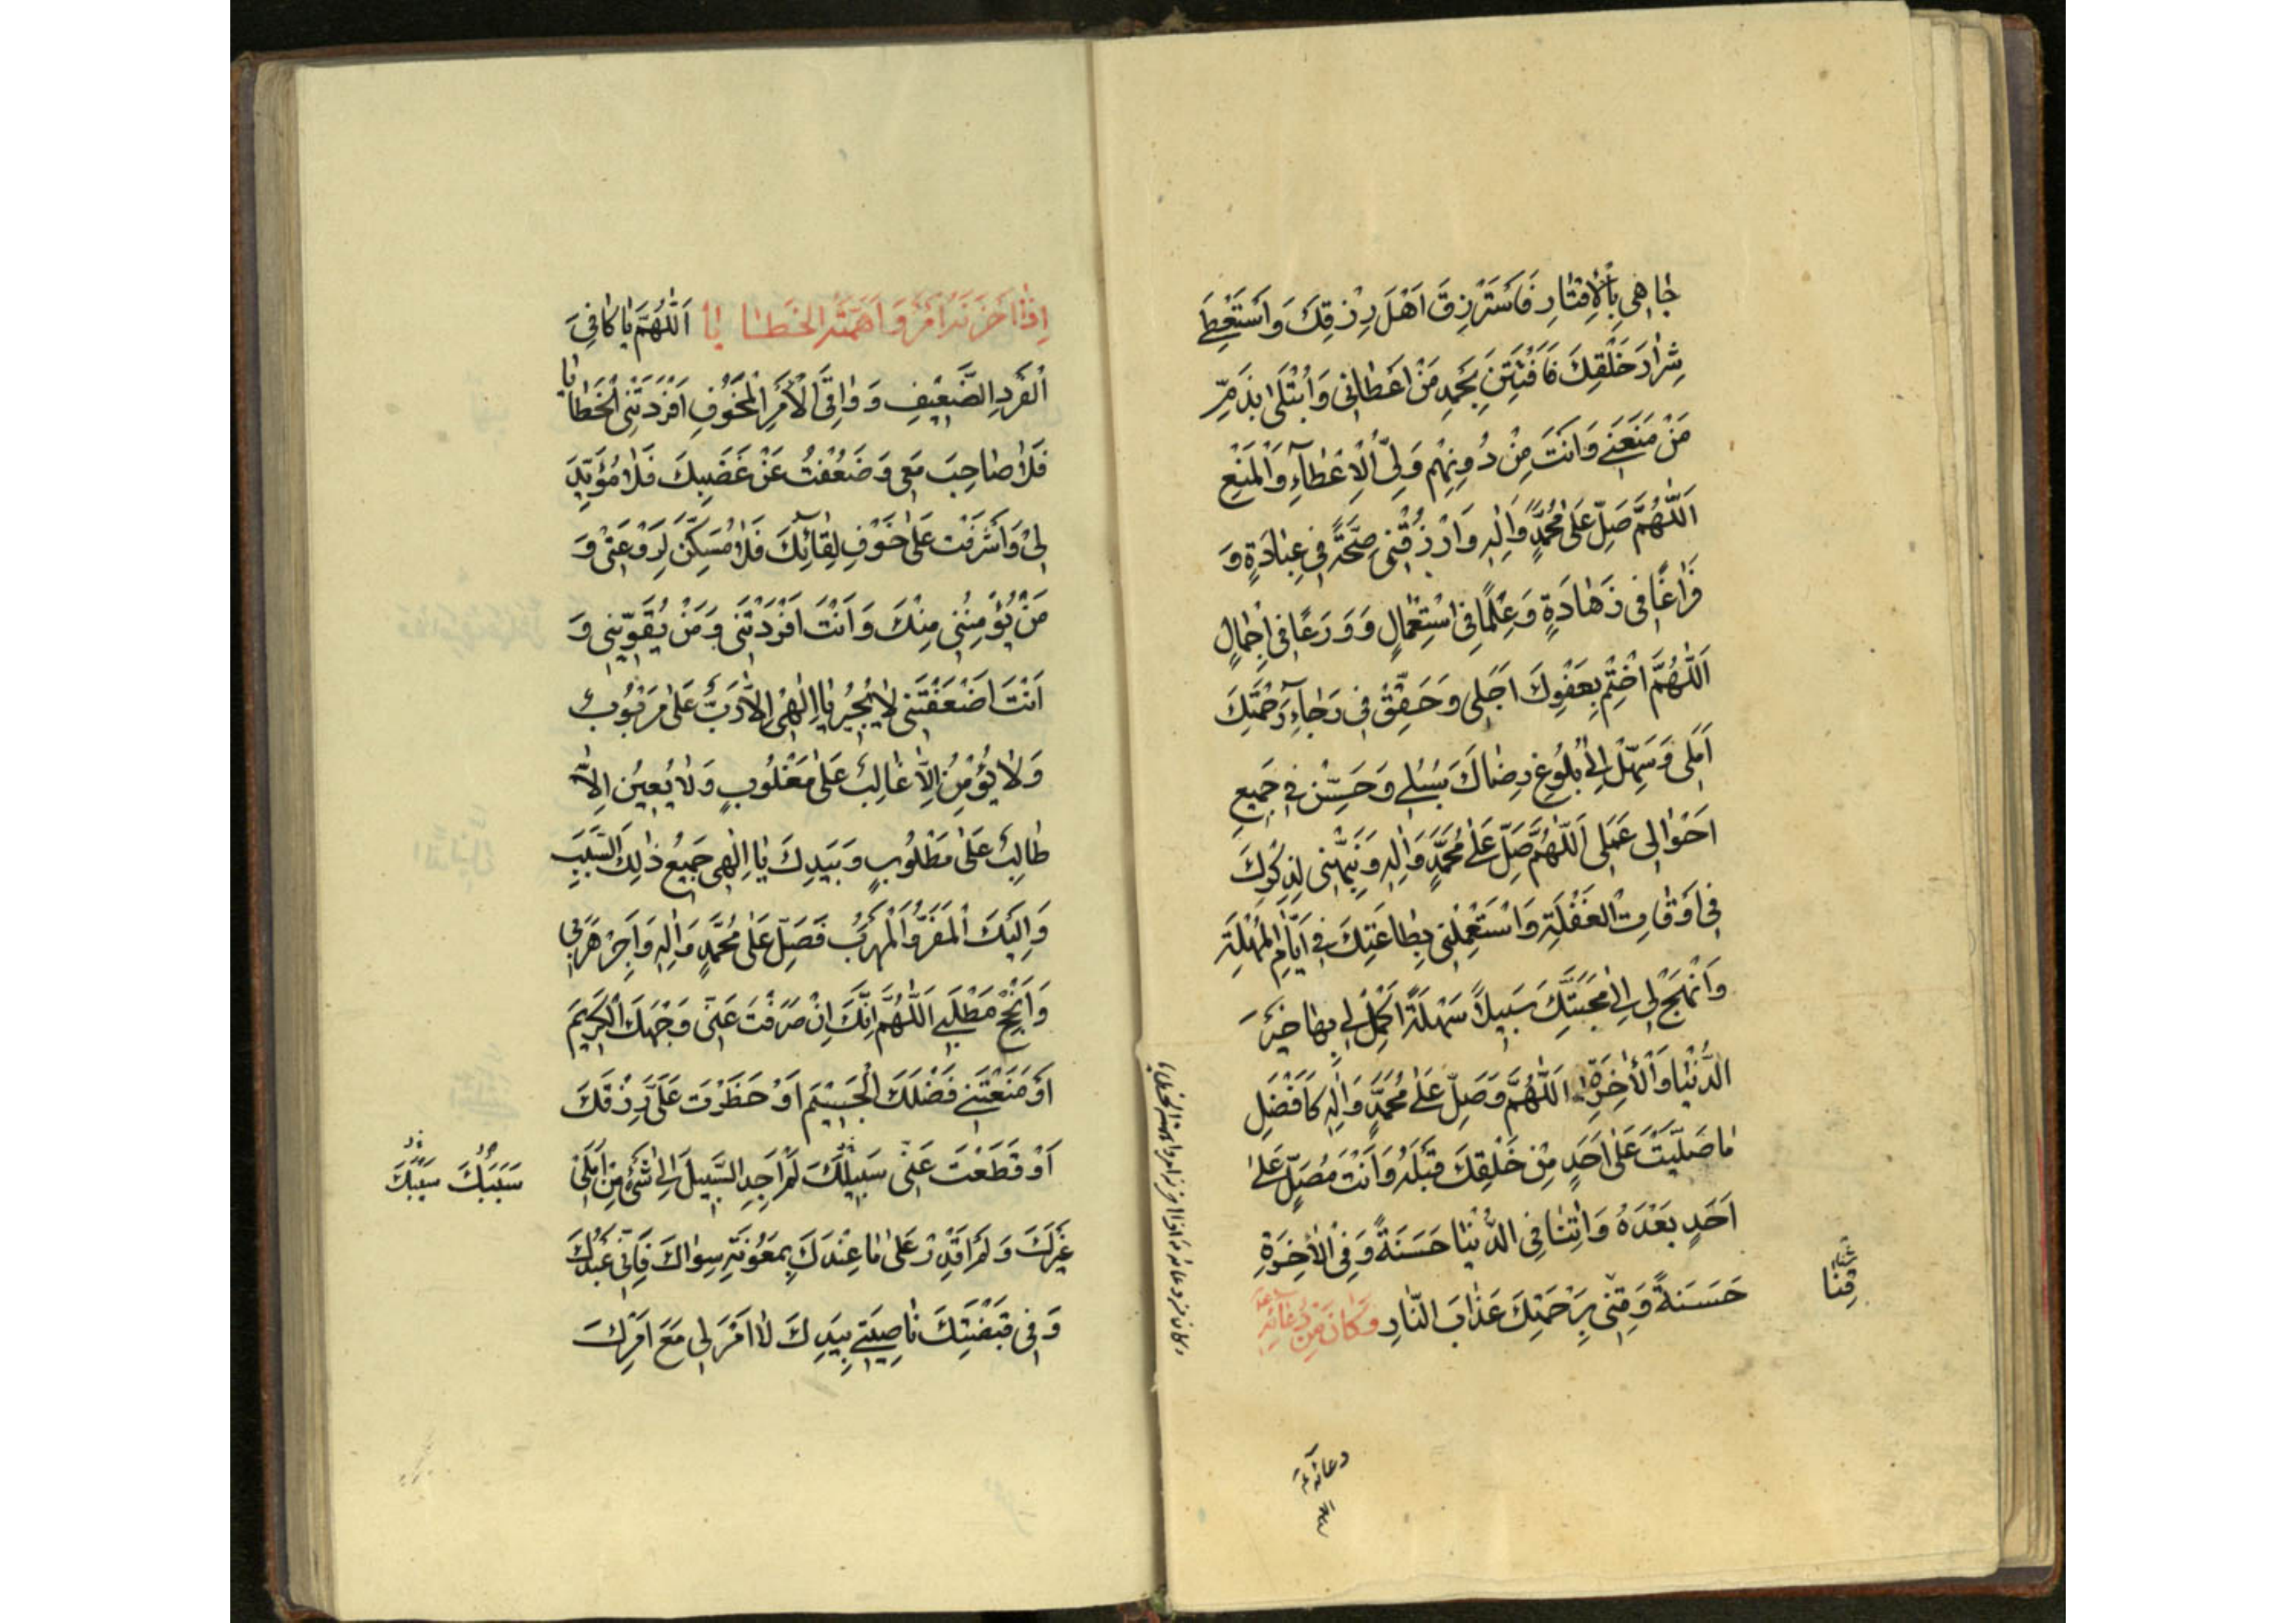 جٰاهِي بِالْاِقْتٰارِ فَاَسْتَرْزِقَ اَهْلَ رِزْقِكَ وَاَسْتَعْطِيَ
شِرٰارَ خَلْقِكَ فَاَفْتَتِنَ بِحَمْدِ مَنْ اَعْطٰانِي وَاُبْتَلىٰ بِذَمِّ
مَنْ مَنَعَنِي وَاَنْتَ مِنْ دُونِهِمْ وَلِيُّ الْاِعْطٰآءِ وَالْمَنْعِ
اَللّٰهُمَّ صَلِّ عَلىٰ مُحَمَّدٍ وَاٰلِهِ وَارْزُقْنِي صِحَّةً فِي عِبٰادَةٍ وَ
فَرٰاغًا فِي زَهٰادَةٍ وَعِلْمًا فِي اسْتِعْمٰالٍ وَوَرَعًا فِي اِجْمٰالٍ
اَللّٰهُمَّ اخْتِمْ بِعَفْوِكَ اَجَلِي وَحَقِّقْ فِي رَجٰآءِ رَحْمَتِكَ
اَمَلِي وَسَهِّلْ اِلىٰ بُلُوغِ رِضٰاكَ سُبُلِي وَحَسِّنْ فِي جَمِيعِ
اَحْوٰالِي عَمَلِي اَللّٰهُمَّ صَلِّ عَلىٰ مُحَمَّدٍ وَاٰلِهِ وَنَبِّهْنِي لِذِكْرِكَ
فِي اَوْقٰاتِ الْغَفْلَةِ وَاسْتَعْمِلْنِي بِطٰاعَتِكَ فِي اَيّٰامِ الْمُهْلَةِ
وَانْهَجْ لِي اِلىٰ مَحَبَّتِكَ سَبِيلاً سَهْلَةً اَكْمِلْ لِي بِهٰا خَيْرَ
الدُّنْيٰا وَالْاٰخِرَةِ اَللّٰهُمَّ وَصَلِّ عَلىٰ مُحَمَّدٍ وَاٰلِهِ كَاَفْضَلِ
مٰا صَلَّيْتَ عَلىٰ اَحَدٍ مِنْ خَلْقِكَ قَبْلَهُ وَاَنْتَ مُصَلٍّ عَلىٰ
اَحَدٍ بَعْدَهُ وَاٰتِنٰا فِي الدُّنْيٰا حَسَنَةً وَفِي الْاٰخِرَةِ
حَسَنَةً وَقِنِي بِرَحْمَتِكَ عَذٰابَ النّٰارِ وَكٰانَ مِنْ دُعٰائِهِ
قِنٰا
دعائه
وكان من دعائه اذا احزنه امر واهمته الخطايا
اِذٰا اَحْزَنَهُ اَمْرٌ وَاَهَمَّتْهُ الْخَطٰايٰا اَللّٰهُمَّ يٰا كٰافِيَ
الْفَرْدِ الضَّعِيْفِ وَوٰاقِيَ الْاَمْرِ الْمَخُوْفِ اَفْرَدَتْنِي الْخَطٰايٰا
فَلاٰ صٰاحِبَ مَعِي وَضَعُفْتُ عَنْ غَضَبِكَ فَلاٰ مُؤَيِّدَ
لِيْ وَاَشْرَفْتُ عَلىٰ خَوْفِ لِقٰائِكَ فَلاٰ مُسَكِّنَ لِرَوْعَتِيْ وَ
مَنْ يُؤْمِنُنِي مِنْكَ وَاَنْتَ اَفْرَدْتَنِي وَمَنْ يُقَوِّيْنِي وَ
اَنْتَ اَضْعَفْتَنِي لاٰ يُجِيْرُ يٰا اِلٰهِي اِلاّٰ رَبٌّ عَلىٰ مَرْبُوْبٍ
وَلاٰ يُؤْمِنُ اِلاّٰ غٰالِبٌ عَلىٰ مَغْلُوْبٍ وَلاٰ يُعِيْنُ اِلاّٰ
طٰالِبٌ عَلىٰ مَطْلُوْبٍ وَبِيَدِكَ يٰا اِلٰهِي جَمِيْعُ ذٰلِكَ السَّبَبِ
وَاِلَيْكَ الْمَفَرُّ وَالْمَهْرَبُ فَصَلِّ عَلىٰ مُحَمَّدٍ وَاٰلِهِ وَاَجِرْ هَرَبِي
وَاَنْجِحْ مَطْلَبِي اَللّٰهُمَّ اِنَّكَ اِنْ صَرَفْتَ عَنِّي وَجْهَكَ الْكَرِيْمَ
اَوْ مَنَعْتَنِي فَضْلَكَ الْجَسِيْمَ اَوْ حَظَرْتَ عَلَيَّ رِزْقَكَ
اَوْ قَطَعْتَ عَنِّي سَبِيْلَكَ لَمْ اَجِدِ السَّبِيْلَ اِلىٰ شَيْءٍ مِنْ اَمَلِي
سَبَبَكَ سَيْبَكَ
غَيْرَكَ وَلَمْ اَقْدِرْ عَلىٰ مٰا عِنْدَكَ بِمَعُوْنَةِ سِوٰاكَ فَاِنِّي عَبْدُكَ
وَفِي قَبْضَتِكَ نٰاصِيَتِي بِيَدِكَ لاٰ اَمْرَ لِي مَعَ اَمْرِكَ